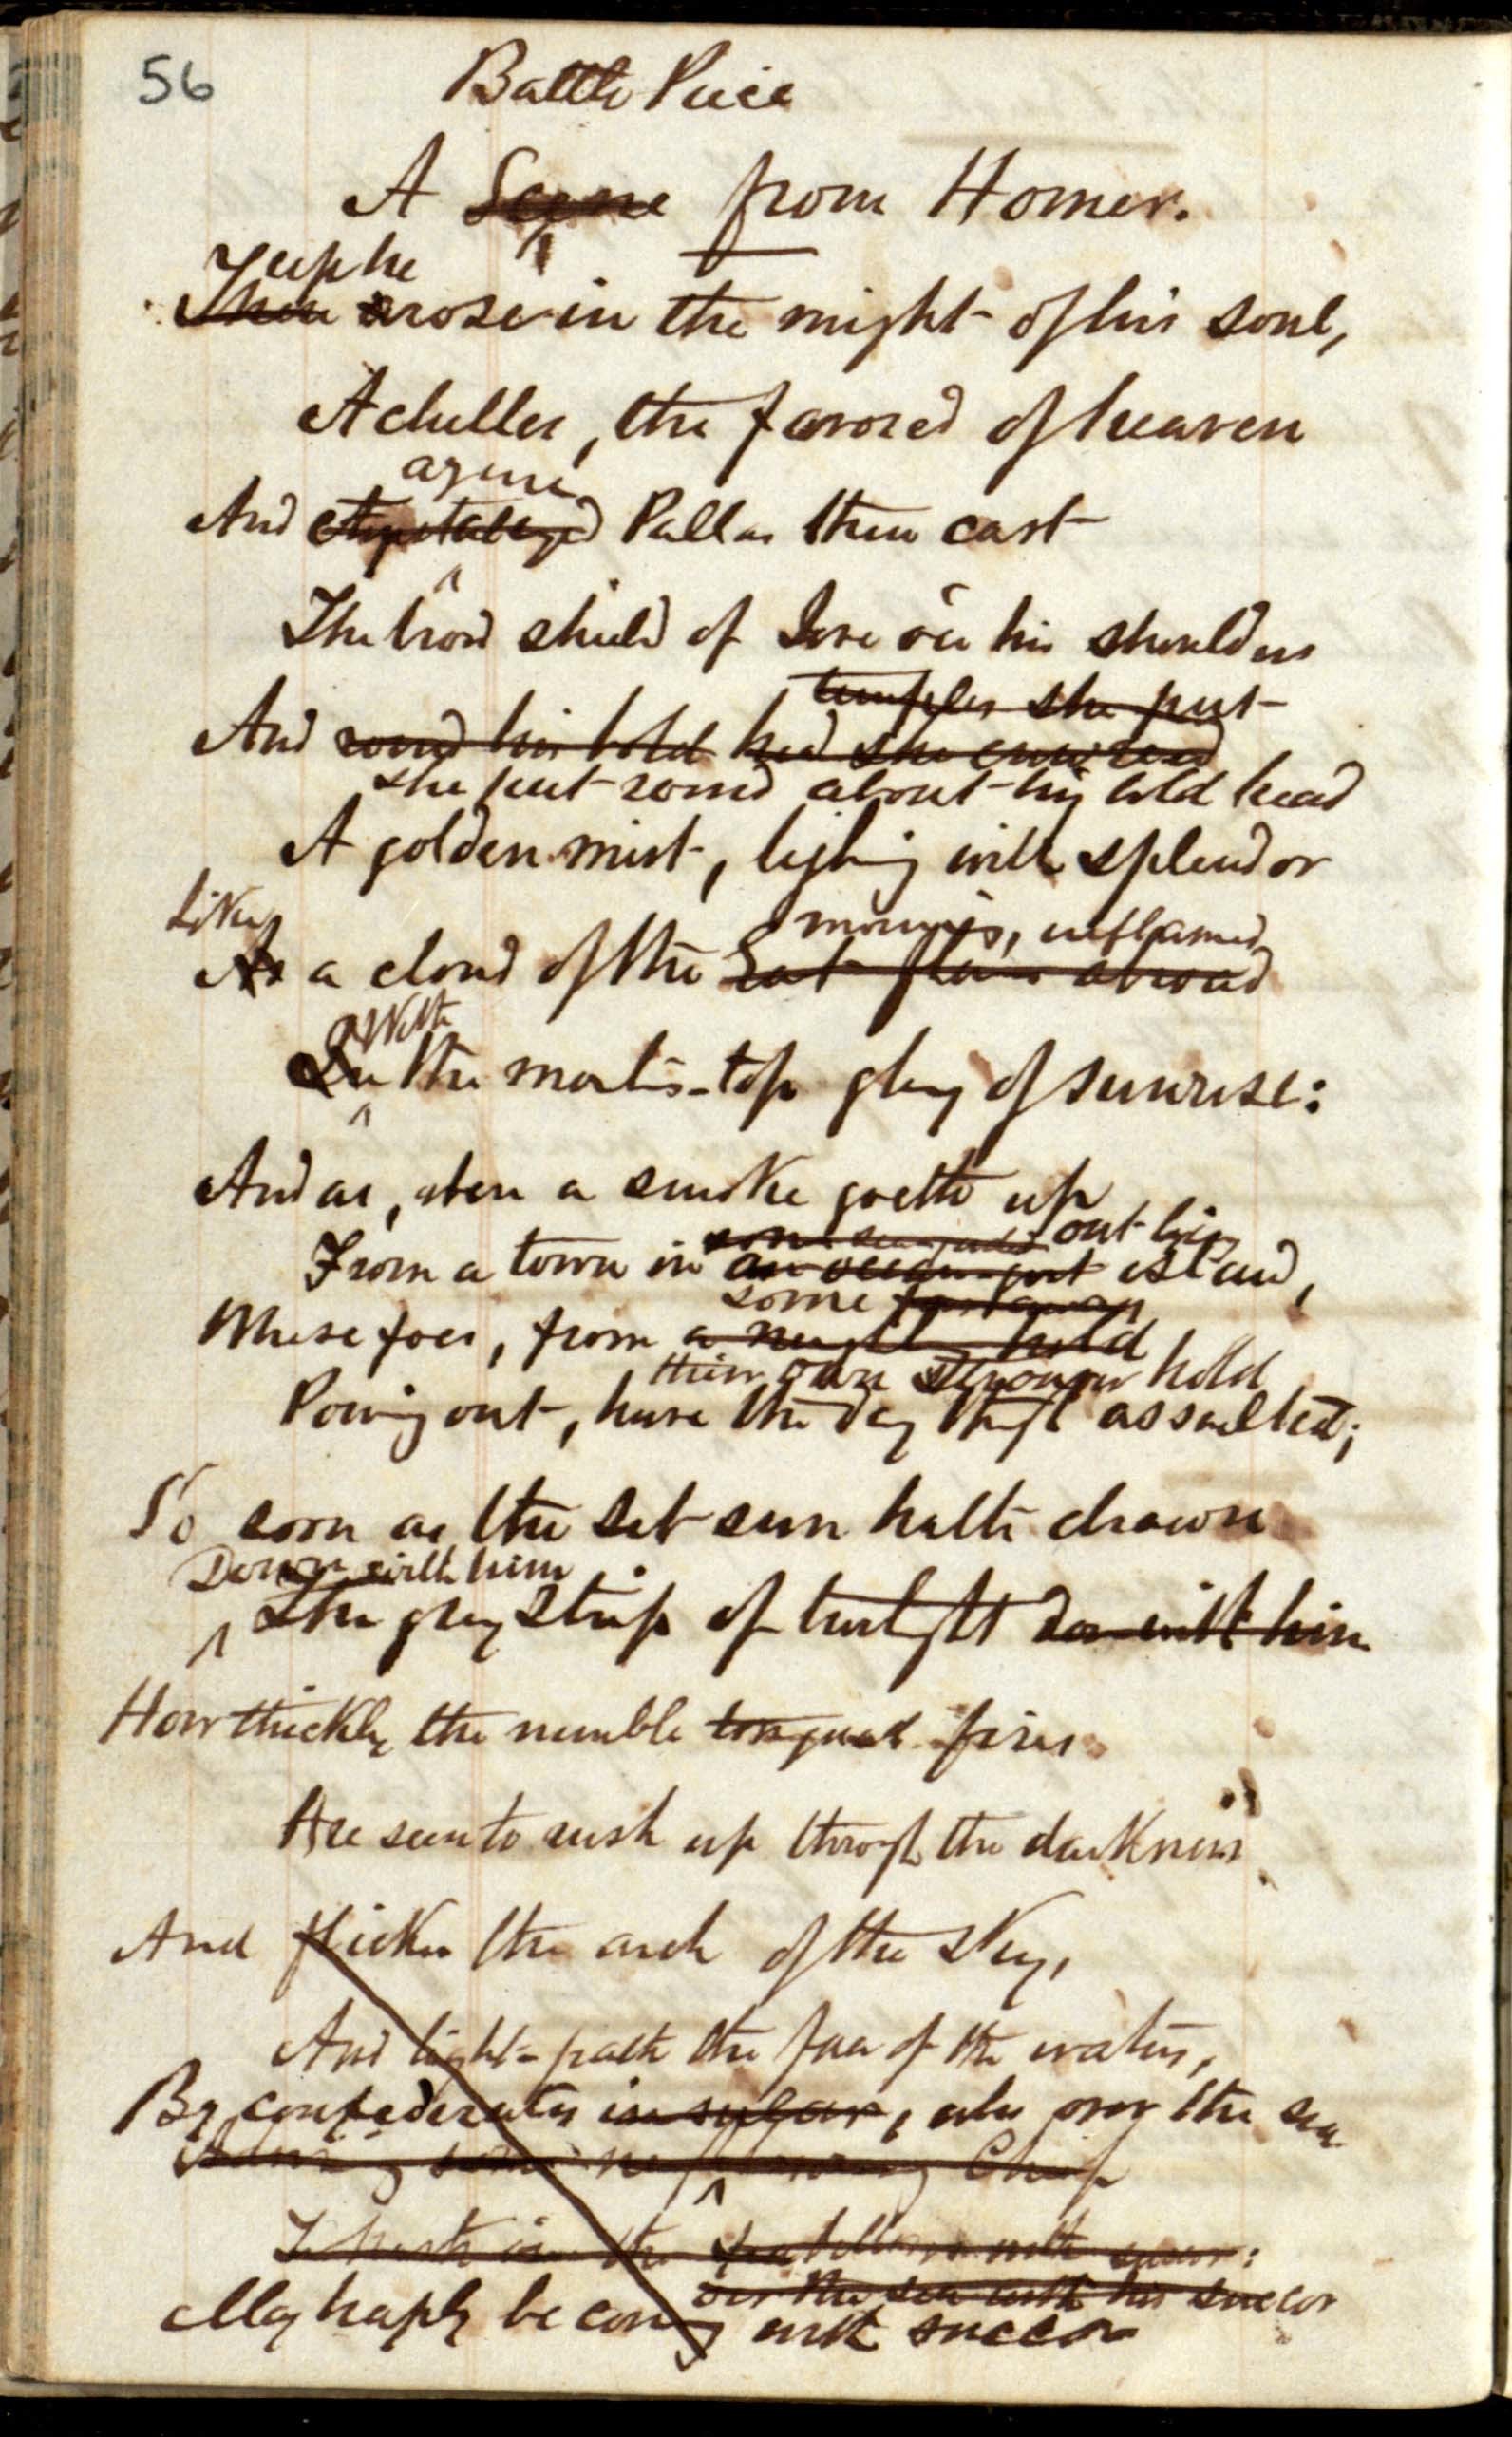 56
Battle Piece
A Scene from Homer.
Up he
Then arose in the might of his soul,
Achilles, the favored of heaven
azure
And Pallas then cast
The broad shield of Jove o'er his shoulders
temples she put
And round his bold head she enwreathed
she put round about his bold head
A golden mist, lighting with splendor
Like
As a cloud of the East flames abroad
morning's, inflamed
With
In the mountain-top glory of sunrise:
And as, when a smoke goeth up
some out lying
From a town in an ocean-girt island,
some far away
Whose foes, from a neighboring hold
their own stronger hold
Pouring out, have the day through assaulted;
So soon as the set sun hath drawn
Down with him
The grey strip of twilight down with him
How thickly the nimble tongued fires
Are seen to rush up through the darkness
And flicker the arch of the sky,
And light-path the face of the waters,
By confederates insular, who over the sea
Chief
the with
o'er the sea with his succor
May haply be coming with succor